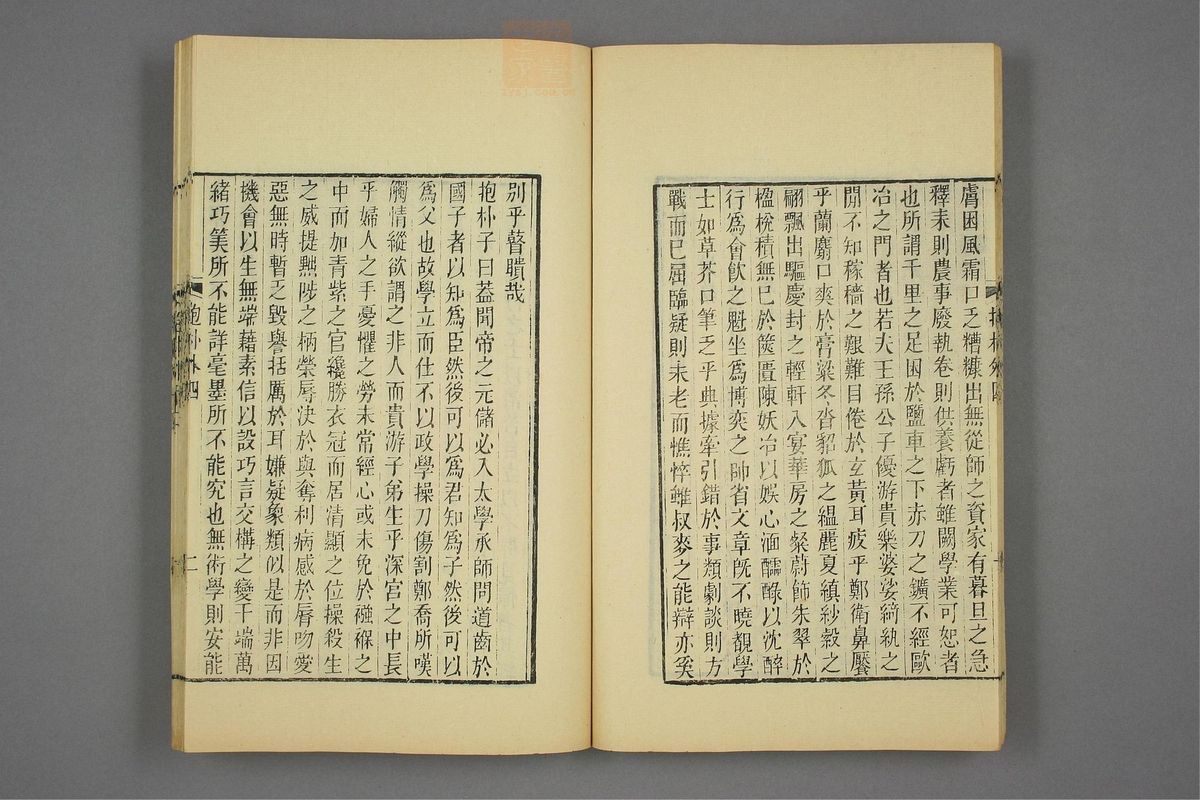 膚困風霜口乏糟糠出無從師之資家有暮旦之急
釋耒則農事廢執卷則供養虧者雖闕學業可恕者
也所謂千里之足困於鹽車之下赤刀之鑛不經歐
冶之門者也若夫王孫公子優游貴樂婆娑綺紈之
閒不知稼穡之艱難目倦於玄黃耳疲乎鄭衛鼻饜
乎蘭麝口爽於膏粱冬沓貂狐之緼麗夏縝紗縠之
翩飄出驅慶封之輕軒入宴華房之粲蔚飾朱翠於
楹梲積無已於篋匱陳妖冶以娛心湎醹醁以沈醉
行爲會飮之魁坐爲博奕之帥省文章旣不曉覩學
士如草芥口筆乏乎典據牽引錯於事類劇談則方
戰而已屈臨疑則未老而憔悴雖叔麥之能辯亦奚
別乎瞽瞶哉
抱朴子曰葢聞帝之元儲必入太學承師問道齒於
國子者以知爲臣然後可以爲君知爲子然後可以
爲父也故學立而仕不以政學操刀傷割鄭喬所嘆
觸情縱欲謂之非人而貴游子弟生乎深宮之中長
乎婦人之手憂懼之勞未常經心或未免於襁褓之
中而加青紫之官纔勝衣冠而居清顯之位操殺生
之威提黜陟之柄榮辱決於與奪利病感於脣吻愛
惡無時暫乏毀譽括厲於耳嫌疑象類似是而非因
機會以生無端藉素信以設巧言交構之變千端萬
緒巧筭所不能詳毫墨所不能究也無術學則安能
抱朴外四